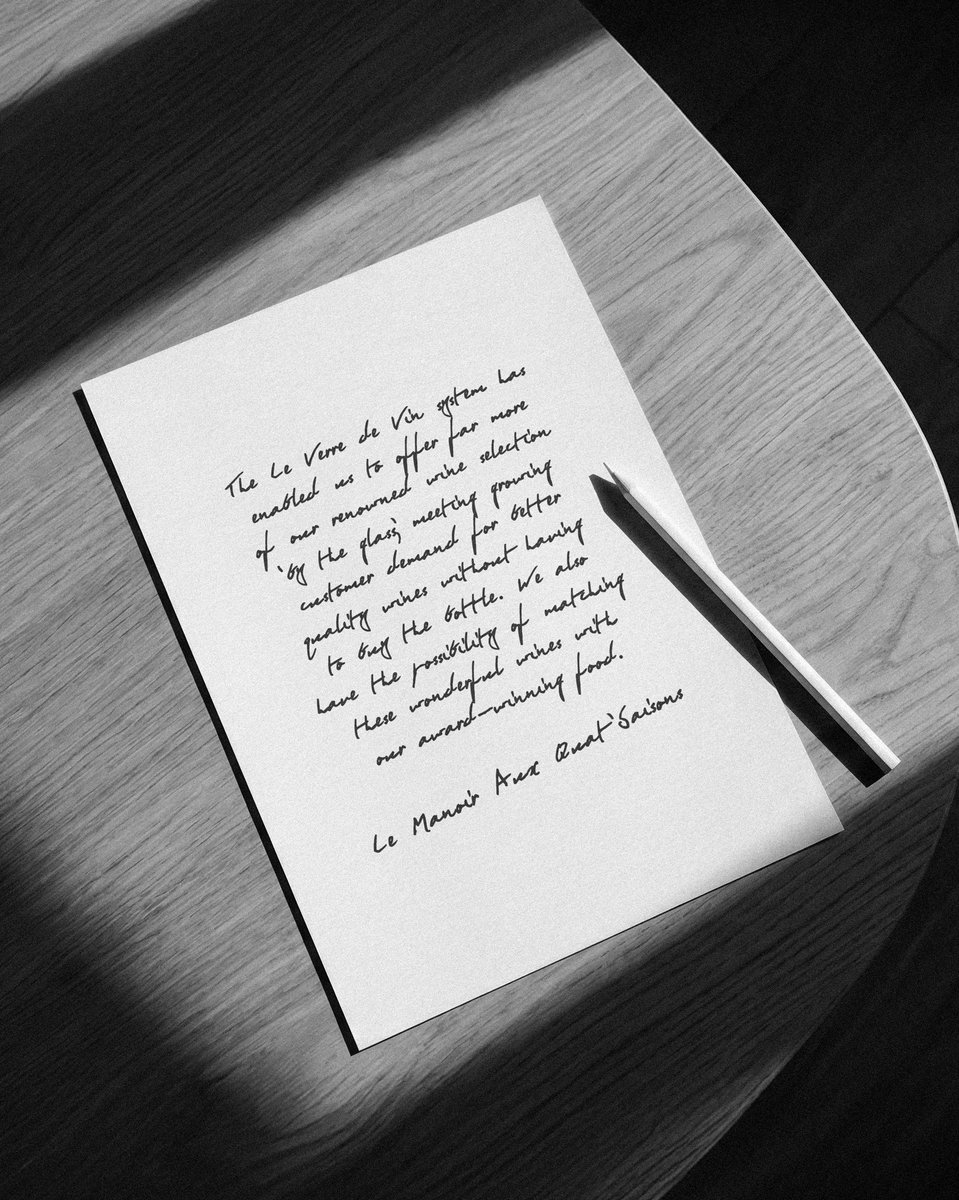 The Le Verre de Vin system has
enabled us to offer far more
of our renowned wine selection
'by the glass', meeting growing
customer demand for better
quality wines without having
to buy the bottle. We also
have the possibility of matching
these wonderful wines with
our award-winning food.
Le Manoir Aux Quat'Saisons